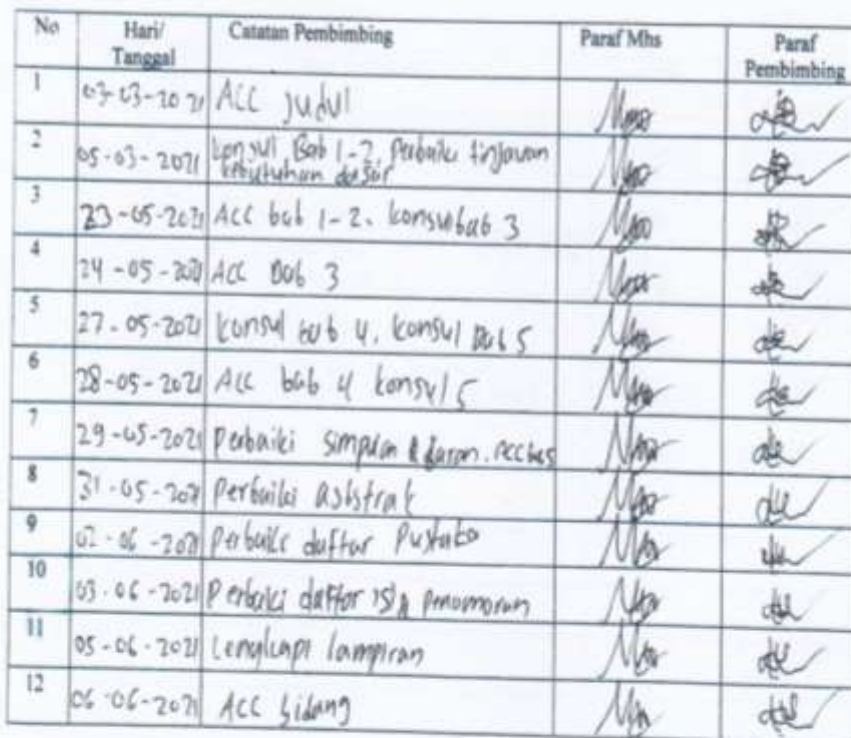 No Hari/ Catatan Pembimbing Paraf Mhs Paraf
Tanggal Pembimbing
1 03-03-2021 ACC judul
2 05-03-2021 konsul Bab 1-2, Perbaiki tinjauan
kebutuhan dasar
3 23-05-2021 ACC bab 1-2. konsul bab 3
4 24-05-2021 ACC Bab 3
5 27-05-2021 konsul bab 4, konsul Bab 5
6 28-05-2021 ACC bab 4 konsul 5
7 29-05-2021 Perbaiki simpulan & saran. ACC
8 31-05-2021 Perbaiki
9 02-06-2021 Perbaiki daftar Pustaka
10 03-06-2021 Perbaiki daftar isi penomoran
11 05-06-2021 Lengkapi lampiran
12 06-06-2021 ACC Sidang